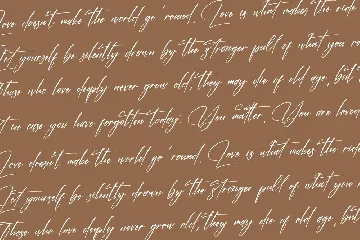 Love doesn't make the world go 'round. Love is what makes the ride
Let yourself be silently drawn by the stronger pull of what you re
Those who love deeply never grow old; they may die of old age, but
t in case you have forgotten today: You matter. You are loved
Love doesn't make the world go 'round. Love is what makes the ride
Let yourself be silently drawn by the stronger pull of what you
Those who love deeply never grow old; they may die of old age, but